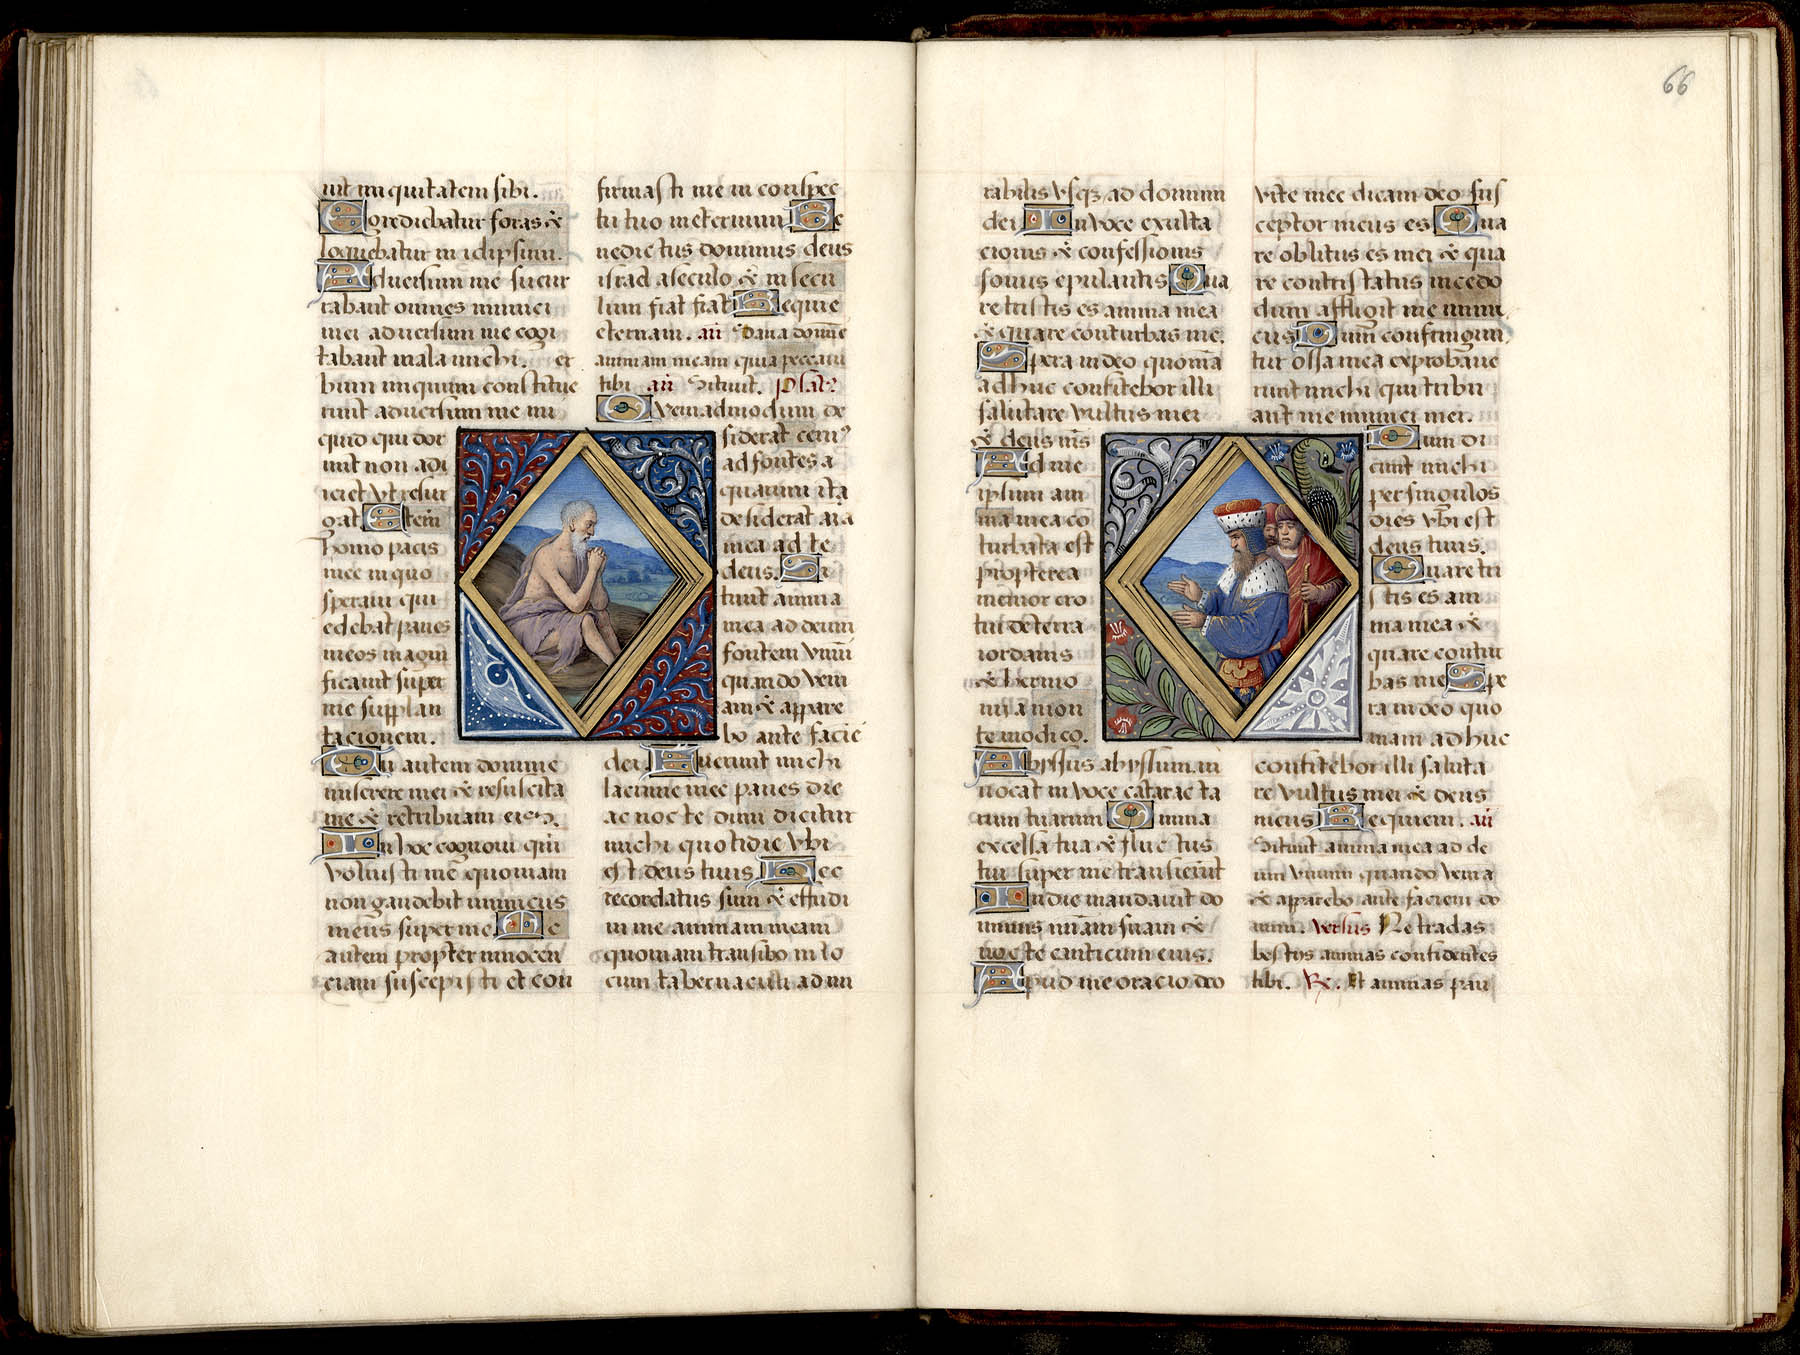 uit iniquitatem sibi.
Egrediebatur foras &
loquebatur in idipsum.
Adversum me susur
rabant omnes inimici
mei adversum me cogi
tabant mala michi. er
bum iniquum constitue
runt adversum me nu
quid qui dor
mit non adi
iciet ut resur
gat Etenim
homo pacis
mee in quo
speravi qui
edebat panes
meos magni
ficavit super
me supplan
tacionem.
Tu autem domine
miserere mei & resuscita
me & retribuam eis.
In hoc cognovi qui
voluisti me quoniam
non gaudebit inimicus
meus super me. Me
autem propter innocen
ciam suscepisti et con
firmasti me in conspec
tu tuo in eternum Be
nedictus dominus deus
israel a seculo & in secu
lum fiat fiat Requie
eternam. añ Sana domine
animam meam quia peccavi
tibi añ Sitivit. psal
Quemadmodum de
siderat cervus
ad fontes a
quarum ita
desiderat aia
mea ad te
deus. Si
tivit anima
mea ad deum
fontem vivu
quando veni
am & appare
bo ante facie
dei Fuerunt michi
lacrime mee panes die
ac nocte dum dicitur
michi quotidie ubi
est deus tuus Hec
recordatus sum & effudi
in me animam meam
quoniam transibo in lo
cum tabernaculi admi
66
rabilis usq; ad domum
dei In voce exulta
cionis & confessionis
sonus epulantis Qua
re tristis es anima mea
& quare conturbas me.
Spera in deo quonia
adhuc confitebor illi
salutare vultus mei
& deus ms
Ad me
ipsum ani
ma mea co
turbata est
propterea
memor ero
tui de terra
iordanis
& hermo
nii a mon
te modico.
Abyssus abyssum in
vocat in voce catarac ta
rum tuarum Omnia
excelsa tua & fluctus
tui super me transierut
In die mandavit do
minus miam suam &
nocte canticum eius.
Apud me oracio deo
vite mee dicam deo sus
ceptor meus es Qua
re oblitus es mei & qua
re contristatus incedo
dum affligit me inimi
cus Dum confringun
tur ossa mea exprobave
runt michi qui tribu
lant me inimici mei.
Dum di
cunt michi
per singulos
dies ubi est
deus tuus.
Quare tri
stis es ani
ma mea &
quare contur
bas me Spe
ra in deo quo
niam adhuc
confitebor illi saluta
re vultus mei & deus
meus Requiem. añ
Sitivit anima mea ad de
um vivum quando venia
& apparebo ante faciem do
mini. versus Ne tradas
bestiis animas confidentes
tibi. Rx. Et animas pau